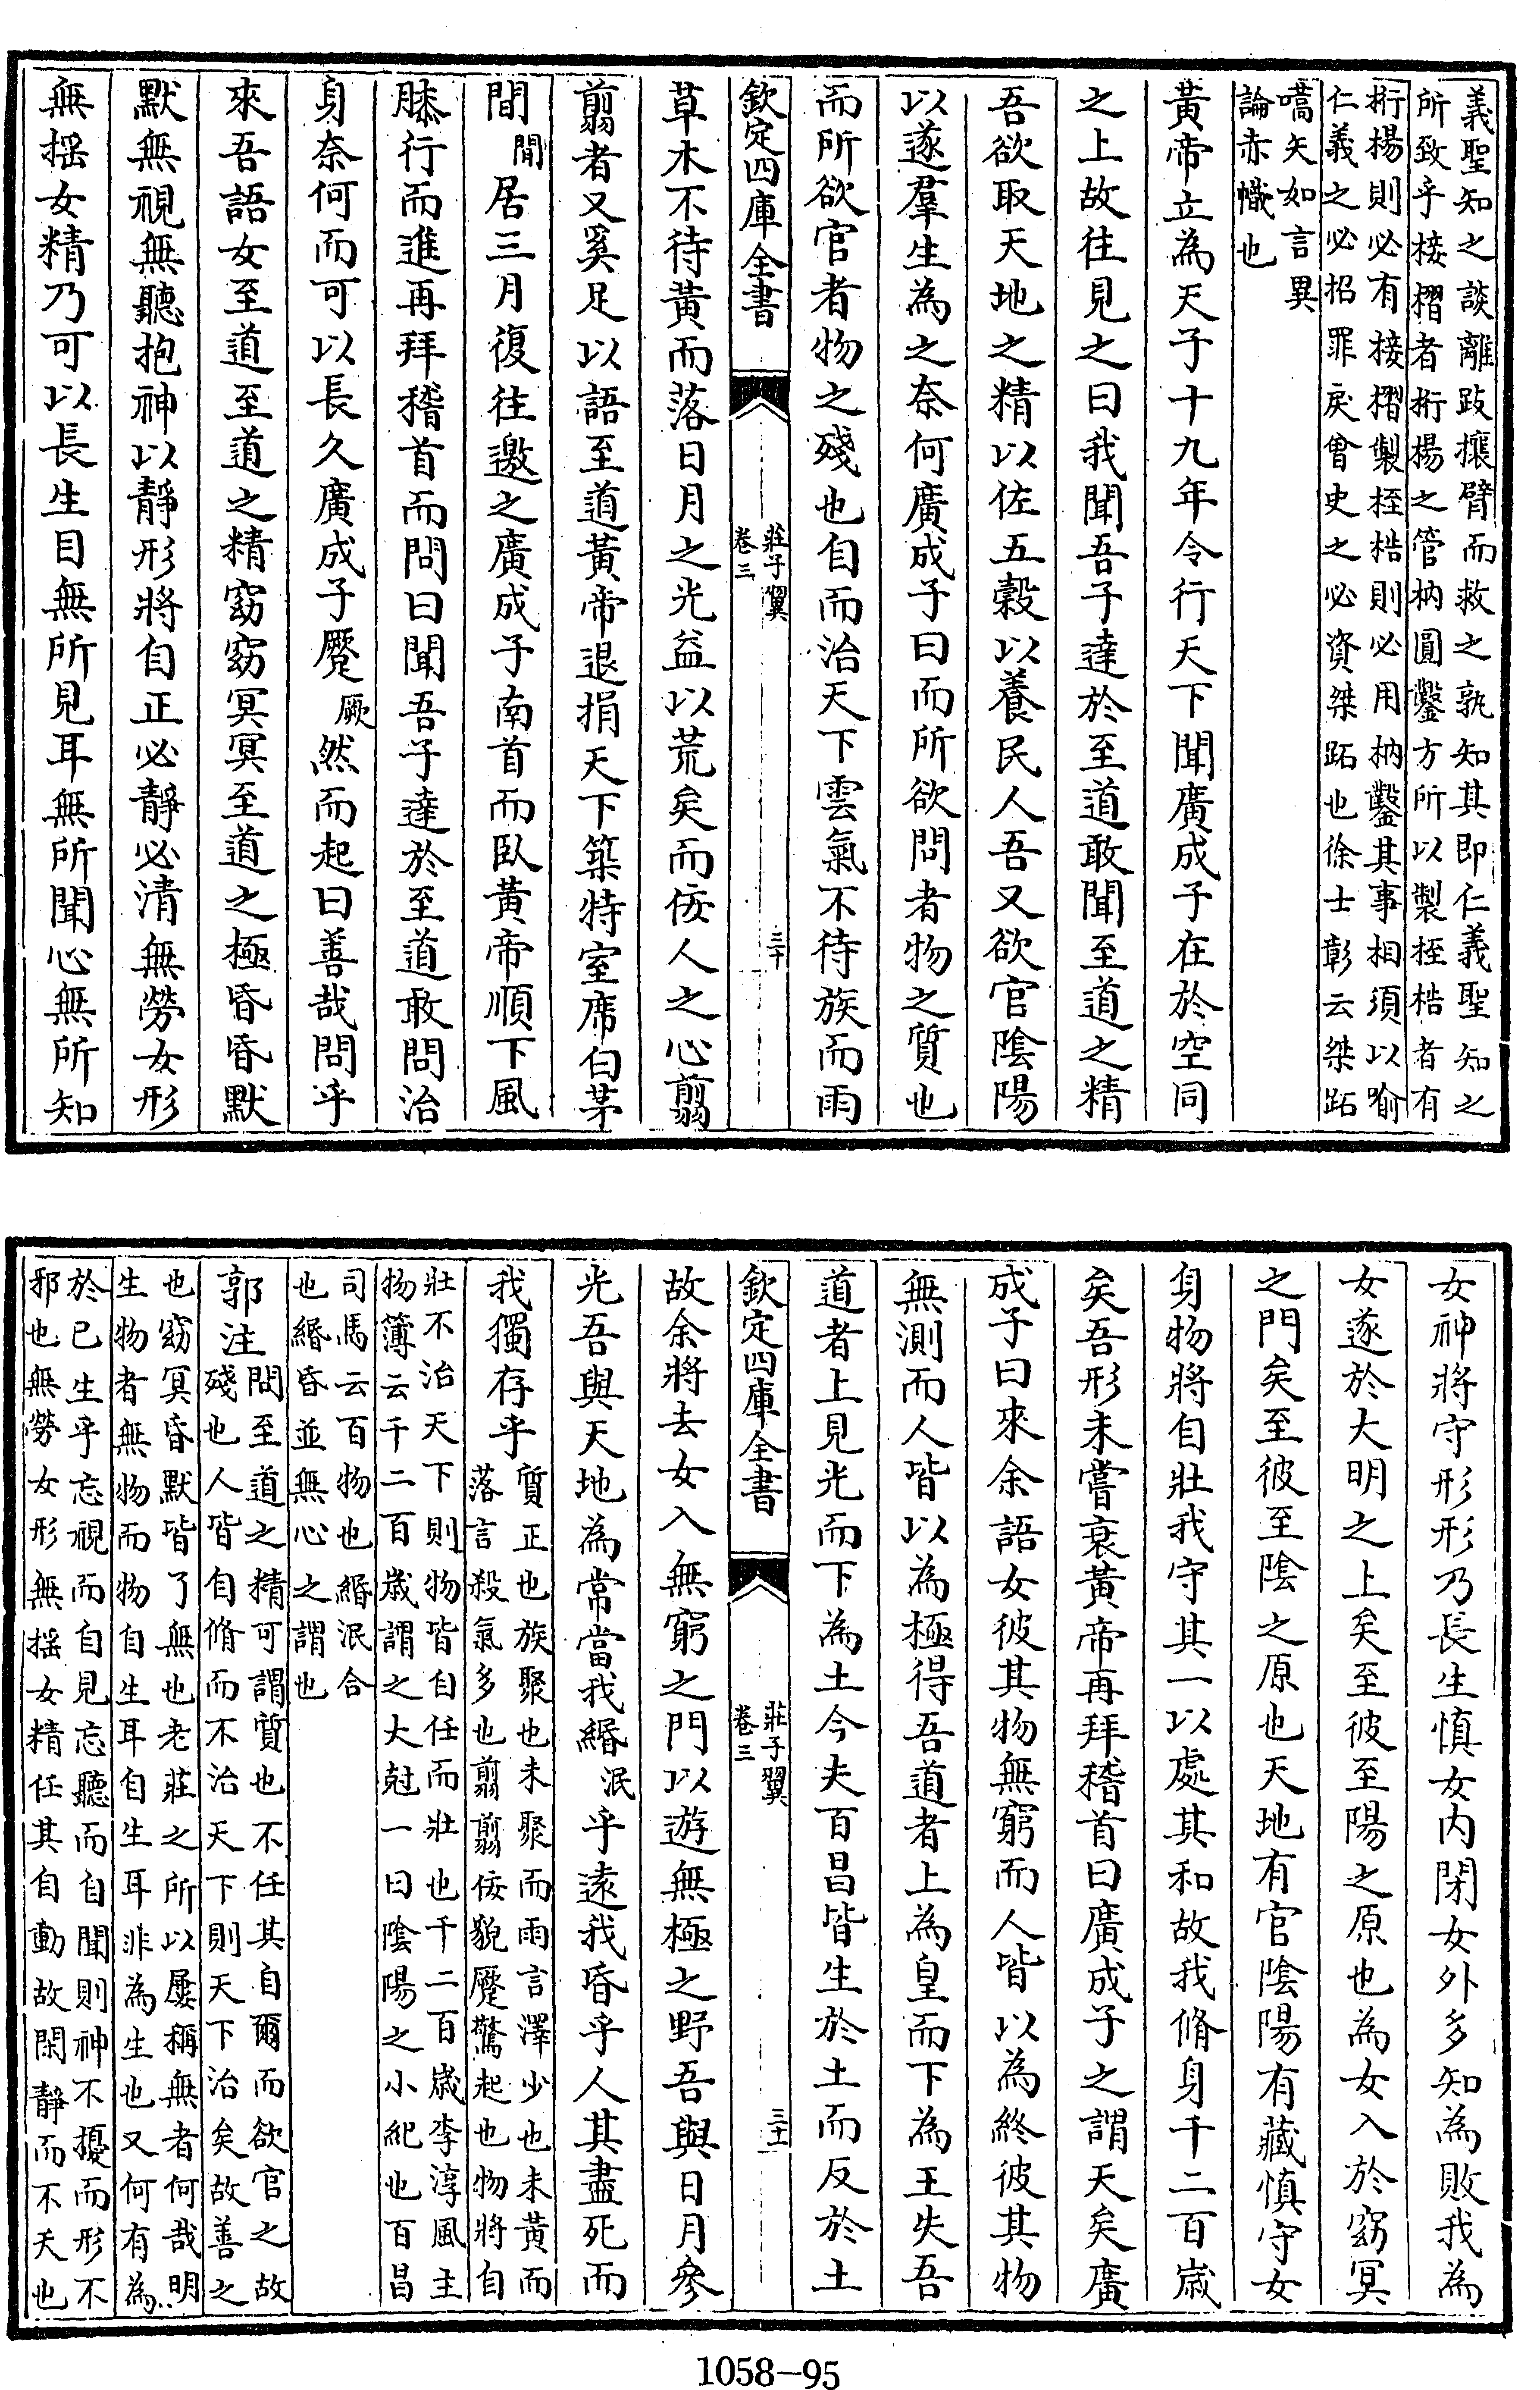 義聖知之談離跂攘臂而救之孰知其即仁義聖知之
所致乎椄槢者桁楊之管枘圓鑿方所以製桎梏者有
桁楊則必有椄槢製桎梏則必用枘鑿其事相須以喻
仁義之必招罪戾曾史之必資桀跖也徐士彰云桀跖
嚆矢如言異
論赤幟也
黃帝立為天子十九年令行天下聞廣成子在於空同
之上故往見之曰我聞吾子達於至道敢聞至道之精
吾欲取天地之精以佐五穀以養民人吾又欲官陰陽
以遂羣生為之奈何廣成子曰而所欲問者物之質也
而所欲官者物之殘也自而治天下雲氣不待族而雨
欽定四庫全書
莊子翼
卷三
三十
草木不待黃而落日月之光益以荒矣而佞人之心翦
翦者又奚足以語至道黃帝退捐天下築特室席白茅
間閒居三月復往邀之廣成子南首而臥黃帝順下風
膝行而進再拜稽首而問曰聞吾子達於至道敢問治
身奈何而可以長久廣成子蹷厥然而起曰善哉問乎
來吾語女至道至道之精窈窈冥冥至道之極昏昏默
默無視無聽抱神以靜形將自正必靜必清無勞女形
無搖女精乃可以長生目無所見耳無所聞心無所知
女神將守形形乃長生慎女內閉女外多知為敗我為
女遂於大明之上矣至彼至陽之原也為女入於窈冥
之門矣至彼至陰之原也天地有官陰陽有藏慎守女
身物將自壯我守其一以處其和故我脩身千二百歲
矣吾形未嘗衰黃帝再拜稽首曰廣成子之謂天矣廣
成子曰來余語女彼其物無窮而人皆以為終彼其物
無測而人皆以為極得吾道者上為皇而下為王失吾
道者上見光而下為土今夫百昌皆生於土而反於土
欽定四庫全書
莊子翼
卷三
三十一
故余將去女入無窮之門以遊無極之野吾與日月參
光吾與天地為常當我緡泯乎遠我昏乎人其盡死而
我獨存乎
質正也族聚也未聚而雨言澤少也未黃而
落言殺氣多也翦翦佞貌蹷驚起也物將自
壯不治天下則物皆自任而壯也千二百歲李淳風主
物簿云千二百歲謂之大尅一曰陰陽之小紀也百昌
司馬云百物也緡泯合
也緡昏並無心之謂也
郭注
問至道之精可謂質也不任其自爾而欲官之故
殘也人皆自脩而不治天下則天下治矣故善之
也窈冥昏默皆了無也老莊之所以屢稱無者何哉明
生物者無物而物自生耳自生耳非為生也又何有為
於已生乎忘視而自見忘聽而自聞則神不擾而形不
邪也無勞女形無搖女精任其自動故閑靜而不夭也
1058-95